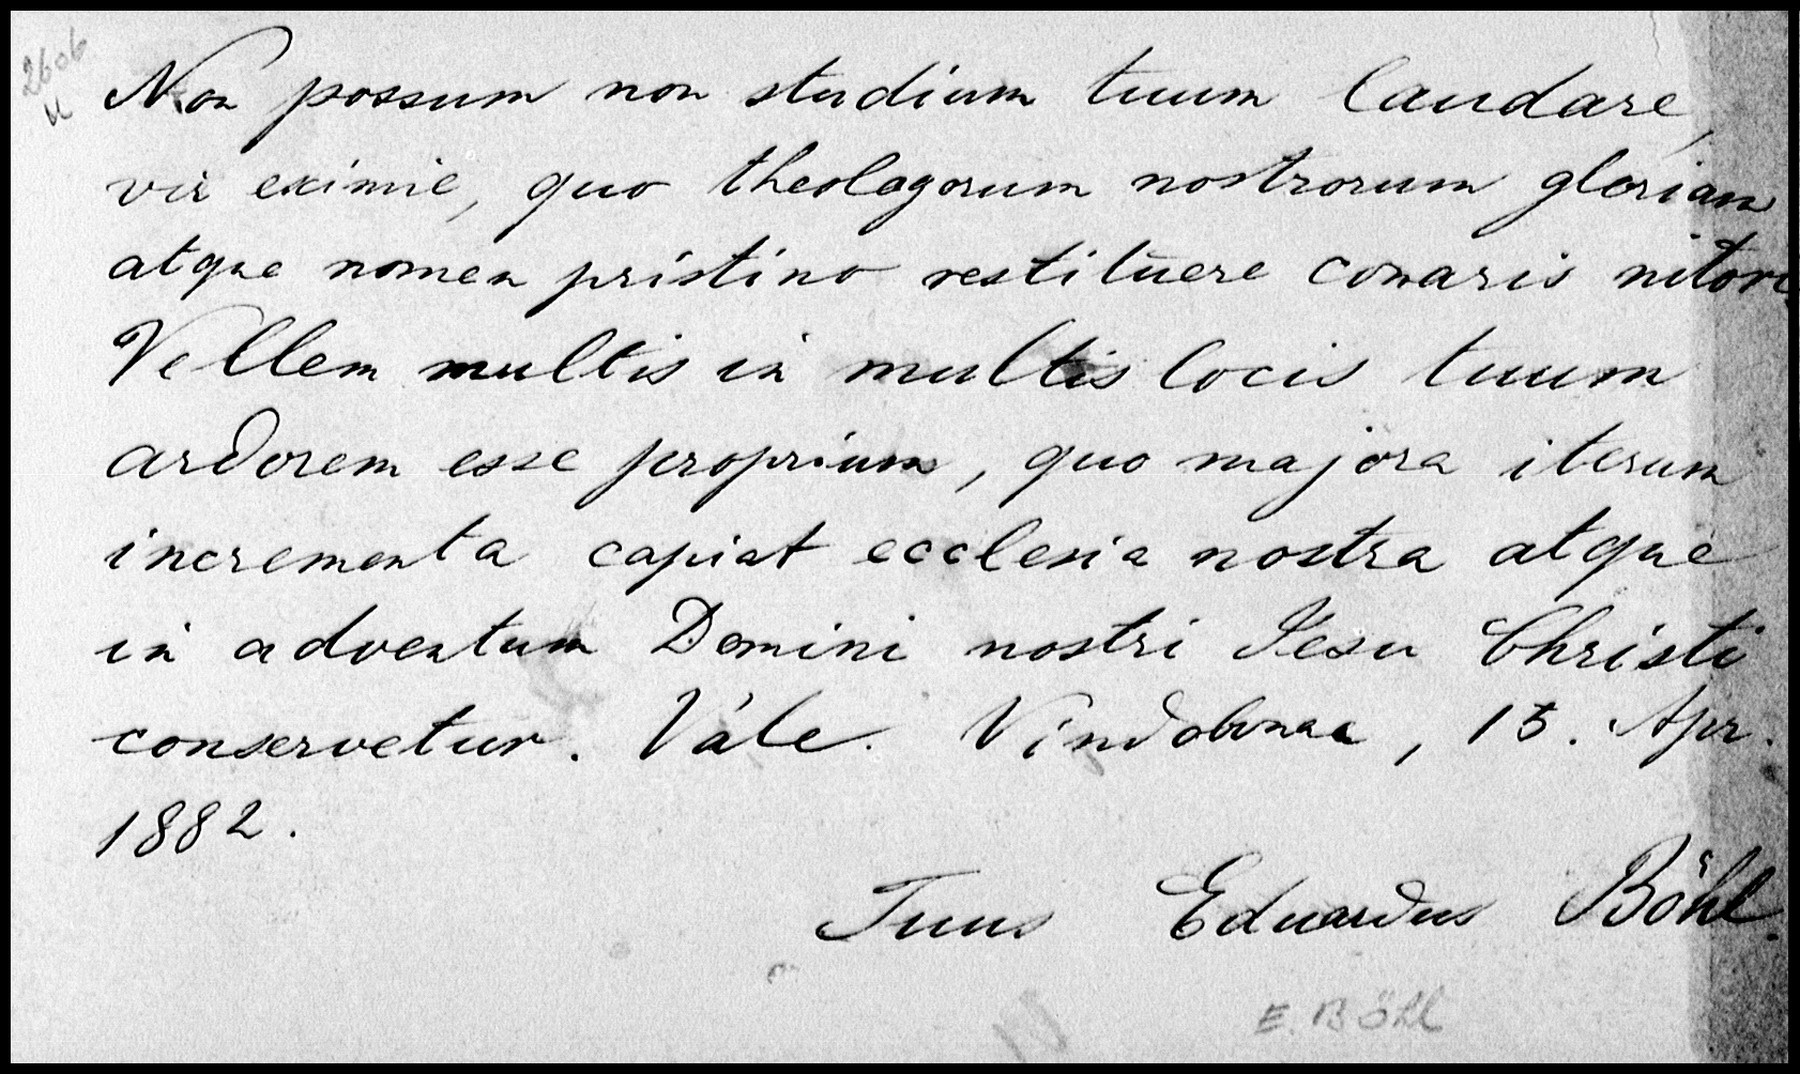 2606
Non possum non studium tuum laudare,
vir eximie, quo theologorum nostrorum gloriam
atque nomen pristino restituere conaris nitori.
Vellem multis in multis locis tuum
ardorem esse proprium, quo majora iterum
incrementa capiat ecclesia nostra atque
in adventum Domini nostri Jesu Christi
conservetur. Vale. Vindobonae, 15. Apr.
1882.
Tuus Eduardus Böhl.
E. Böhl